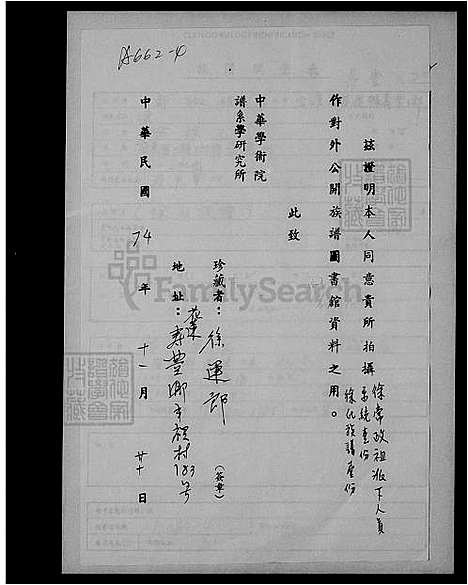 A662-4
茲證明本人同意貴所拍攝
徐偉政祖派下人員
系統壹份
徐氏族譜壹份
作對外公開族譜圖書館資料之用。
此致
中華學術院
譜系學研究所
珍藏者：徐運郎（簽章）
地址：花蓮壽豐鄉月眉村183號
中華民國74年十一月廿日
FamilySearch